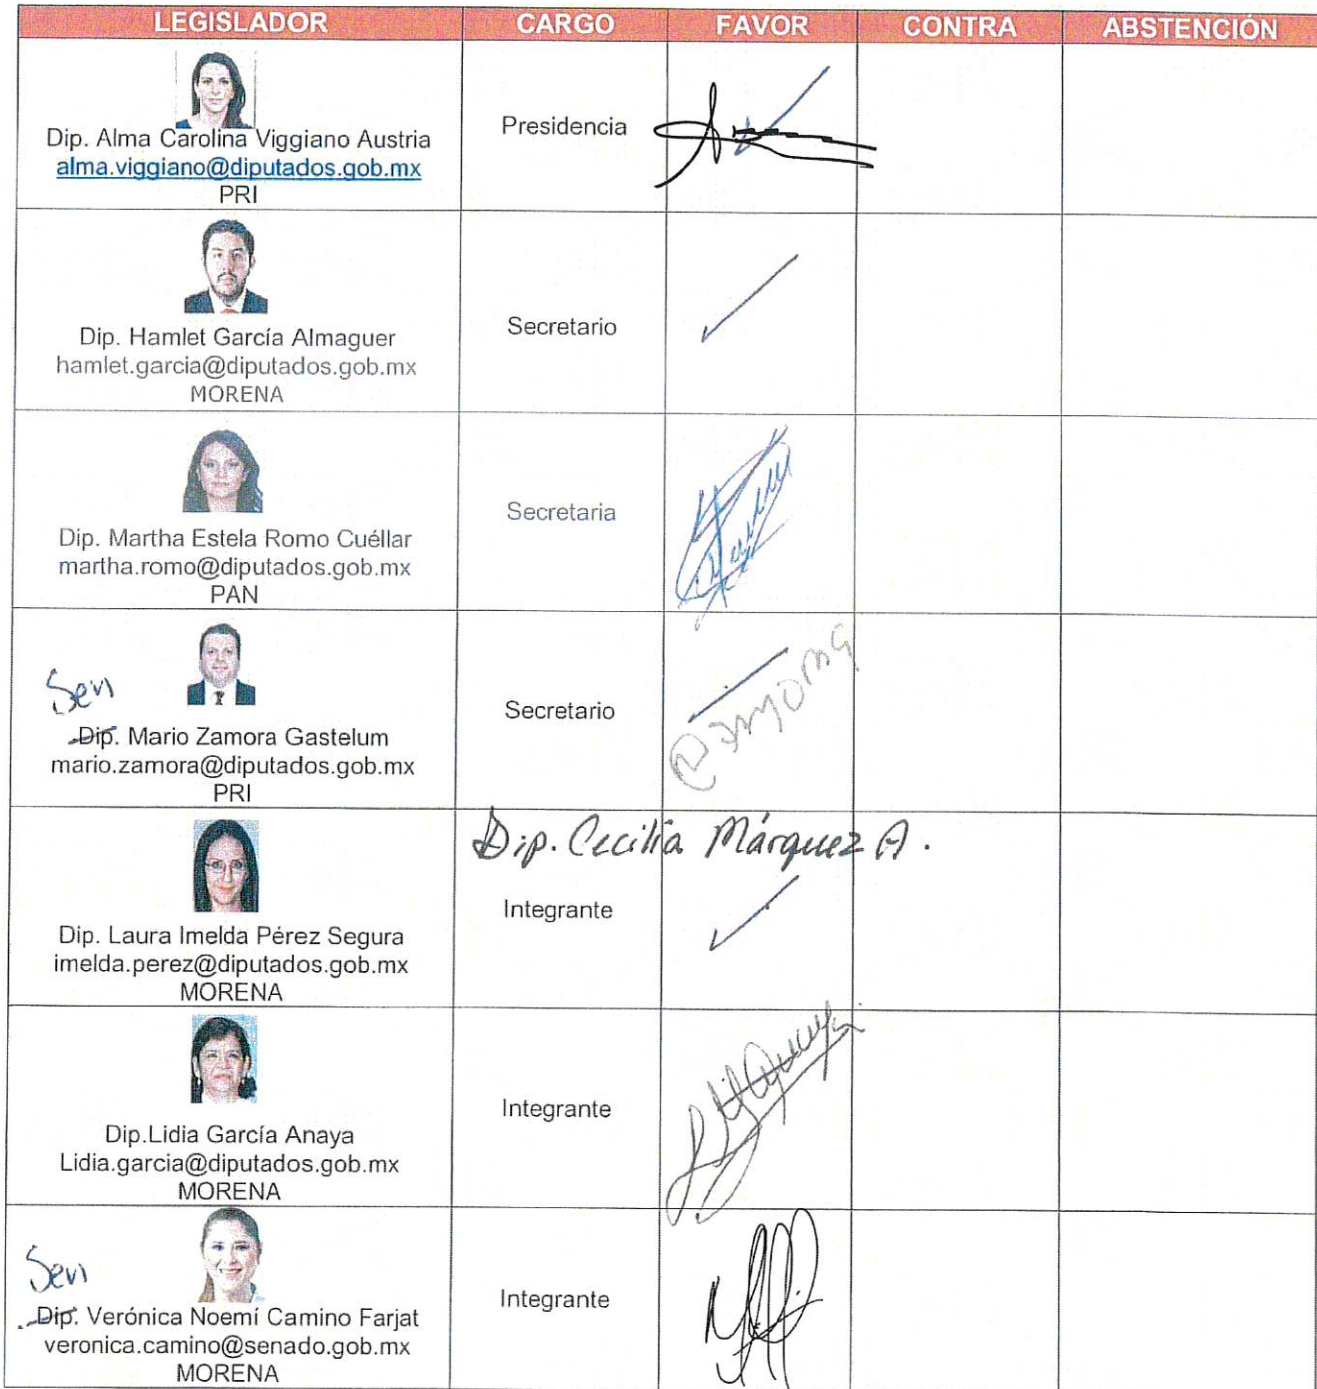 LEGISLADOR CARGO FAVOR CONTRA ABSTENCIÓN
Dip. Alma Carolina Viggiano Austria
alma.viggiano@diputados.gob.mx
PRI
Presidencia
Dip. Hamlet García Almaguer
hamlet.garcia@diputados.gob.mx
MORENA
Secretario
Dip. Martha Estela Romo Cuéllar
martha.romo@diputados.gob.mx
PAN
Secretaria
Sen
Dip. Mario Zamora Gastelum
mario.zamora@diputados.gob.mx
PRI
Secretario
Dip. Cecilia Márquez A.
Dip. Laura Imelda Pérez Segura
imelda.perez@diputados.gob.mx
MORENA
Integrante
Dip.Lidia García Anaya
Lidia.garcia@diputados.gob.mx
MORENA
Integrante
Sen
Dip. Verónica Noemí Camino Farjat
veronica.camino@senado.gob.mx
MORENA
Integrante